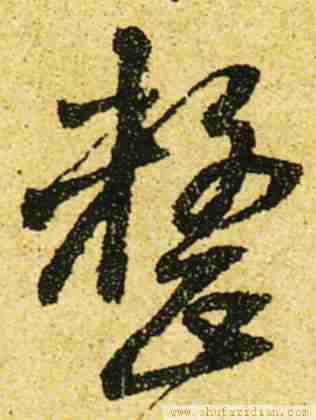 整
www.shufazidian.com